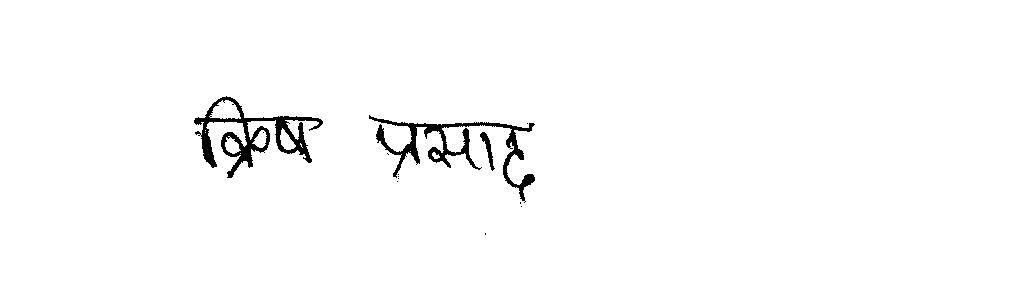 क्रिष प्रसाद